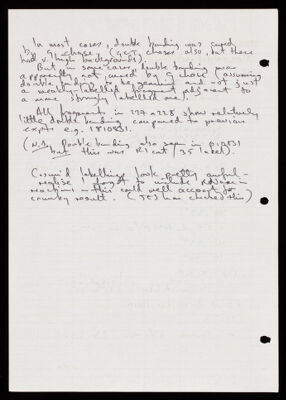 In most cases, double banding was cured
by G chase. (GCT chases also, but these
had v. high backgrounds).
But in some cases double banding was
apparently not cured by G chase (assuming
double banding to be genuine and not just
a weakly-labelled fragment adjacent to
a more strongly labelled one).
All fragments in 227 & 228 show relatively
little double banding compared to previous
expts e.g. 181085 1.
(N.B. Double banding also seen in
but this was RT cat / 35 label).
Cosmid labellings look pretty awful -
realise I forgot to include RNase in
reactions - this could well account for
crumby result. (JES has checked this)